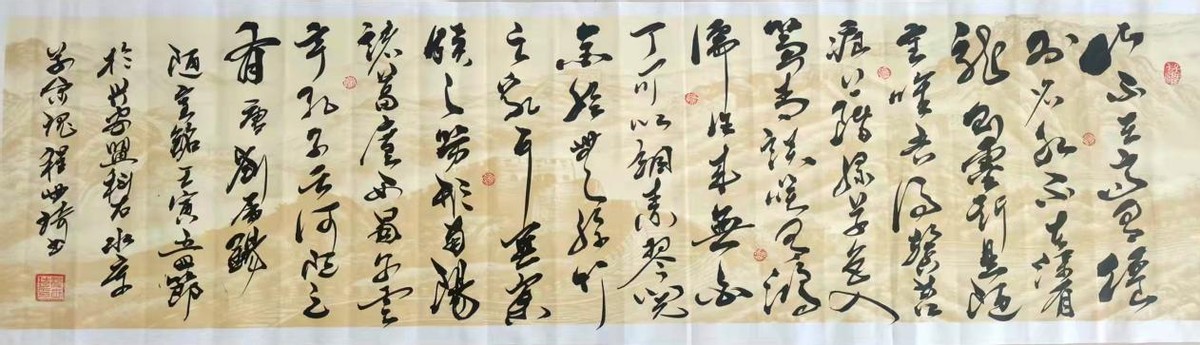 山不在高有僊
则名水不在深有
龍則靈斯是陋
室唯吾德馨苔
痕上階綠草色入
簾青談笑有鴻
儒往來無白
丁可以調素琴閱
金經無絲竹
之亂耳無案
牘之勞形南陽
諸葛廬西蜀子雲
亭孔子云何陋之
有唐劉禹錫
陋室銘壬寅五四節
於
程世琦书